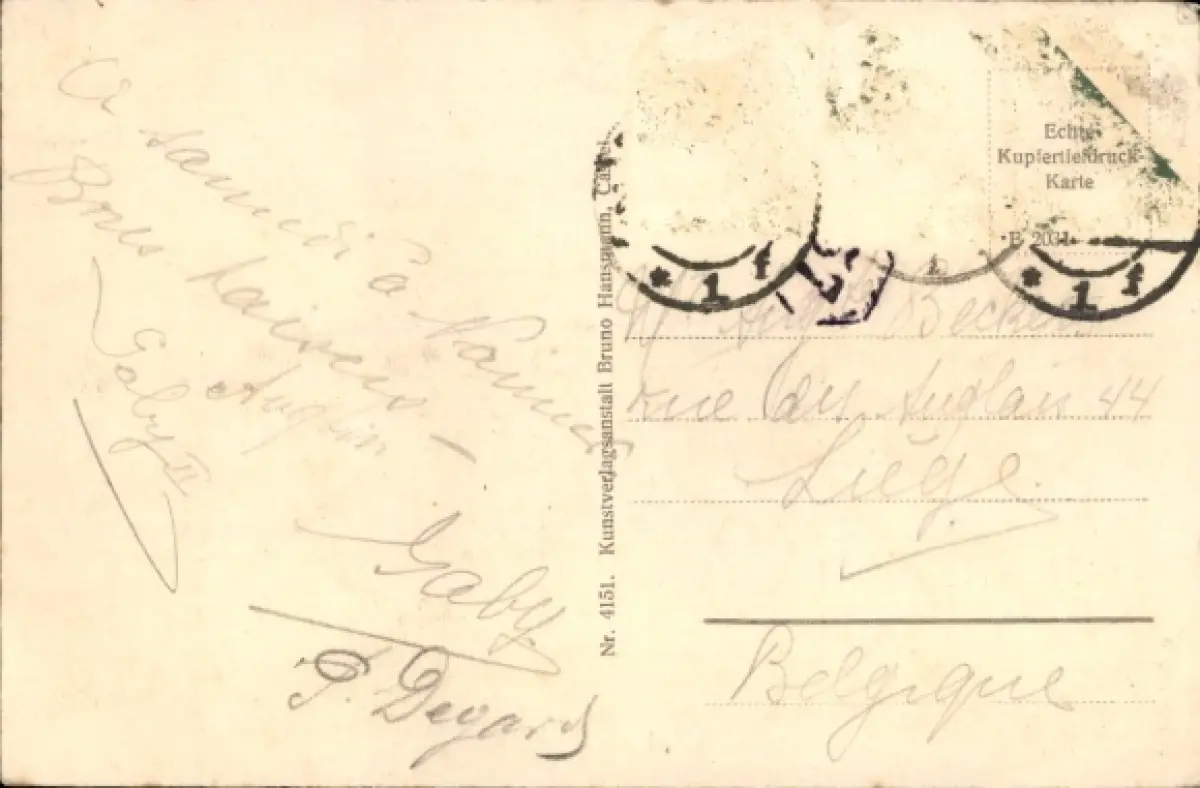 A samedi à Namur
Bons baisers
Gaby II
Gaby
P. Degard
Nr. 4151. Kunstverlagsanstalt Bruno Hansmann, Cassel.
Echte
Kupfertiefdruck-
Karte
E 2031
* 1 f
* 1 f
Beckers
rue des Anglais 44
Liège
Belgique